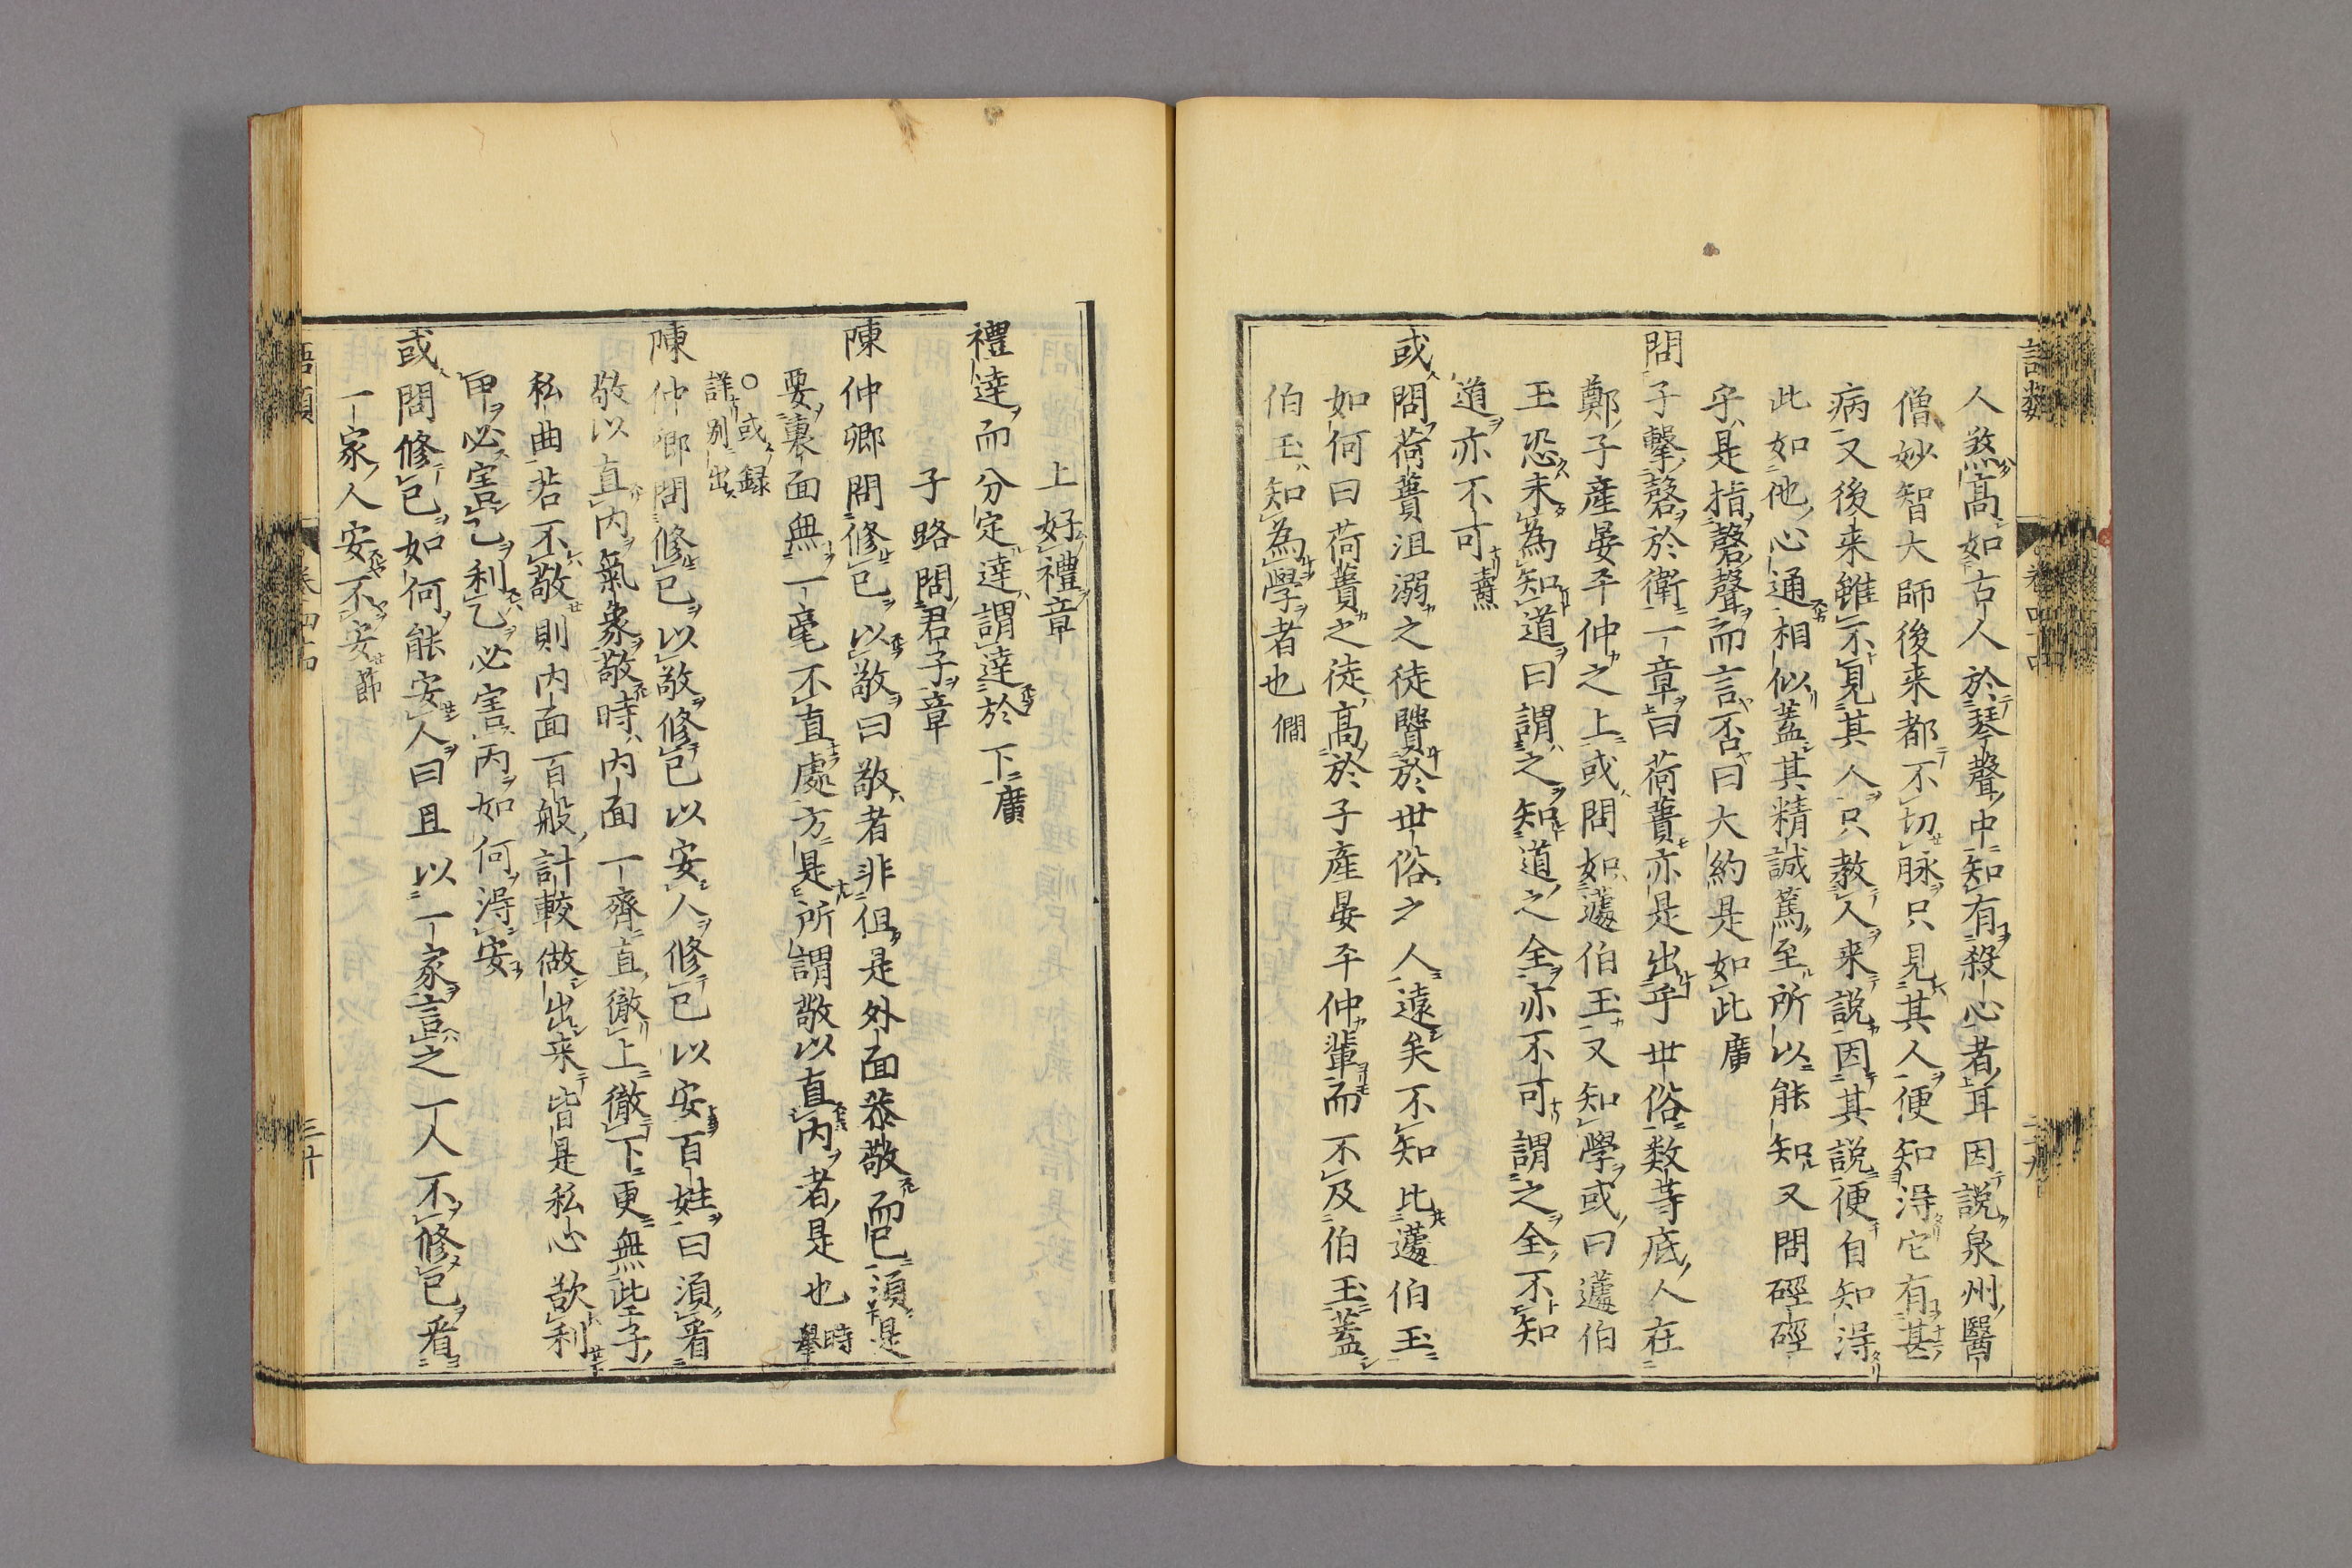 人煞高如古人於琴聲中知有殺心者耳因說泉州醫
僧妙智大師後来都不切脉只見其人便知淂它有甚
病又後来雖不見其人只教人来說因其說便自知淂
此如他心通相似蓋其精誠篤至所以能知又問硜硜
乎是指磬聲而言否曰大約是如此廣
問子擊磬於衛一章曰荷蕢亦是出乎世俗数等底人在
鄭子產晏平仲之上或問如蘧伯玉又知學或曰蘧伯
玉恐未為知道曰謂之知道之全亦不可謂之全不知
道亦不可燾
或問荷蕢沮溺之徒賢於世俗之人遠矣不知比蘧伯玉
如何曰荷蕢之徒高於子產晏平仲輩而不及伯玉蓋
伯玉知為學者也僩
上好禮章
禮達而分定達謂達於下廣
子路問君子章
陳仲卿問修己以敬曰敬者非但是外面恭敬而已須是
要裏面無一毫不直處方是所謂敬以直内者是也時舉
○或録詳別出
陳仲卿問修己以敬修己以安人修己以安百姓曰須看
敬以直内氣象敬時内面一齊直徹上徹下更無些子
私曲若不敬則内面百般計較做出来皆是私心欲利
甲必害乙利乙必害丙如何淂安
或問修己如何能安人曰且以一家言之一人不修己看
一家人安不安節
語類
卷四十四
三十